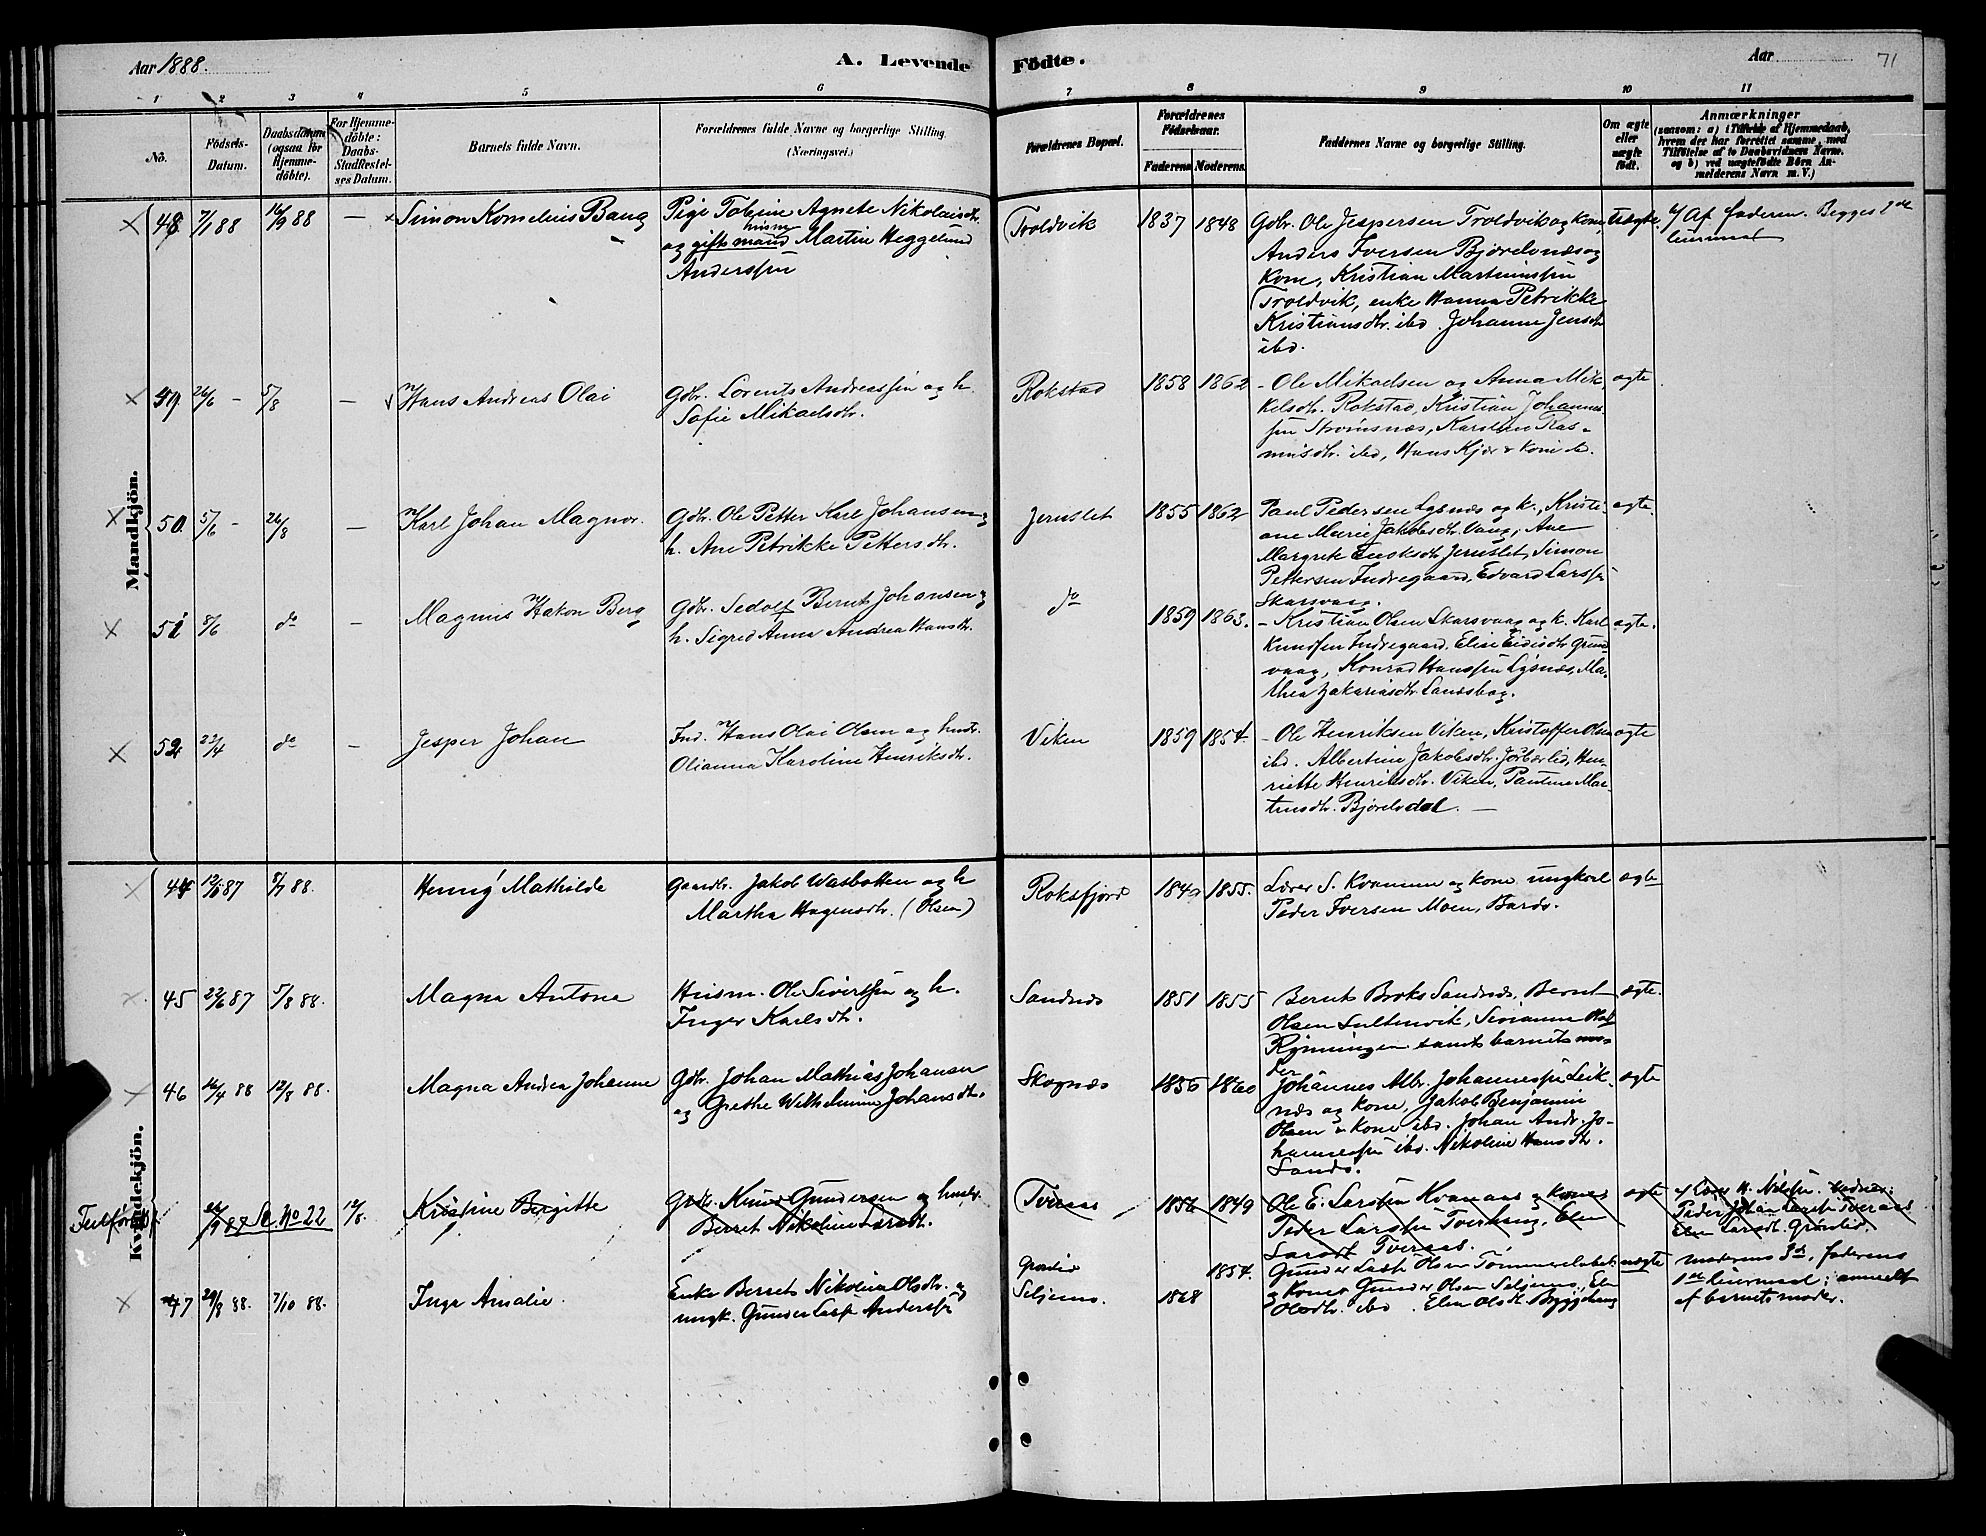 Aar 1888.
A. Levende Födte.
Aar
71
1 2 3 4 5 6 7 8 9 10 11
No.
Födsels-
Datum.
Daabsdatum
(ogsaa for
Hjemme-
döbte).
For Hjemme-
döbte:
Daabs-
Stadfestel-
ses Datum.
Barnets fulde Navn.
Forældrenes fulde Navne og borgerlige Stilling.
(Næringsvei.)
Forældrenes Bopæl.
Forældrenes
Födselsaar.
Faderens Moderens.
Faddernes Navne og borgerlige Stilling.
Om ægte
eller
uægte
født.
Anmærkninger
(saasom: a) i Tilfælde af Hjemmedaab,
hvem der har forrettet samme, med
Tilföielse af to Daabsvidners Navne.
og b) ved uægtefödte Börn An-
melderens Navn m. V.)
Mandkjön.
48 7/1 88 16/9 88 —
Simon Kornelius Bang
Pige Tobine Agnete Nikolaisdtr.
husm
og gift mand Martin Heggelund
Anderssen
Troldvik
1837 1848
Gdbr. Ole Jespersen Troldvik og kone,
Anders Iversen Bjorelvnæs og
kone, Kristian Martinussen
Troldvik, enke Hanna Petrikke
Kristiansdtr. ibd. Johanne Jensdtr
ibd.
uægte
Af faderen. Begges 2det
leiermaal
49 26/6 – 5/8 —
Hans Andreas Olai
Gdbr. Lorents Andreassen og h.
Sofie Mikaelsdtr.
Rokstad
1858 1862
– Ole Mikaelsen og Anna Mik
kelsdtr. Rokstad, Kristian Johannes-
sen Stromsnæs, Karoline Ras-
musdtr. ibd, Hans Kjær & kone do.
ægte
50 5/6 – 26/8 —
Karl Johan Magnor.
Gdbr. Ole Petter Karl Johansen og
h. Ane Petrikke Pettersdtr.
Jernslet
1855 1862
Paul Pedersen Lysnæs og k., Kristi-
ane Marie Jakobsdtr. Vang, Ane
Margrete Enoksdtr Jernslet, Simon
Pettersen Indregaard, Edvard Larssen
Skarsvaag.
ægte.
51 8/6 do —
Magnus Hakon Berg
Gdbr. Sedolf Bernt Johansen og
h. Sigrid Anna Andrea Hansdtr.
do
1859 1863.
– Kristian Olsen Skarsvaag og k. Karl
Knudsen Indregaard. Elise Eidisdtr Grun-
vaag, Konrad Hanssen Lysnæs, Ma-
thea Zakariasdtr Sandsbag.
ægte.
52 22/4 do —
Jesper Johan
Ind. Hans Olai Olsen og hustr.
Olianna Karoline Henriksdtr.
Viken
1859 1854.
– Ole Henriksen Viken, Kristoffer Olsen
ibd. Albertine Jakobsdtr. Jobærlid, Hen-
riette Henriksdtr. Viken, Pauline Mar-
tinsdtr. Bjorelvdal. —
ægte
Kvindekjön.
44 87 8/7 88.
Henny Mathilde
Gaardbr. Jakob Wasbotten og h
Martha Hagensdtr. (Olsen)
Roksfjord
1855.
Lærer S. Kvammen og kone ungkarl
Peder Iversen Moen, Bardo.
ægte
45 22/6 87 5/8 88.
Magna Antona
Husm. Ole Sivertsen og h.
Inger Karlsdtr.
Sandnæs
1851 1855
Bernt Broks Sandnæs, Bernt
Olsen Sultenvik, Sivianna
Rynningen samt barnets mo-
der
ægte.
46 16/4 88 12/8 88.
Magna Andrea Johanne
Gdbr. Johan Mathias Johansen
og Grethe Wilhelmine Johansdtr.
Skognæs
1856 1860
Johannes Albr. Johannessen Leik-
næs og kone, Jakob Benjamin
Olsen & kone ibd. Johan Andr. Jo-
hannessen ibd. Nikoline Hansdtr.
Sands.
ægte
87 Se No 22 12/8.
Kristine Bergitte
Gdbr. Knud Gundersen og hustr.
Berret Nikoline Larsdtr.
Tveraas
1856 1849
Ole E. Larssen Kvanaas og kone,
Peder Larssen Tverhaug, Elen
Larsdtr Tveraas.
ægte
Lærer H. Nilssen. Vidner:
Peder Johan Larssen Tveraas
Elen Larsdtr. Gronlid.
47 29/8 88. 7/10 88.
Inga Amalie.
Enke Berret Nikolina Olsdtr. og
ungk. Gunder Larss Anderssen
Gronlid
Seljemo.
1868 1854.
Gunder Larss Olsen Tømmerelvbak:
og kone Gunder Olsen Seljemo, Elen
Olsdtr. ibd. Elen Olsdtr Bryggehaug
uægte
moderens 3die, faderens
1ste leiermaal; anmeldt
af barnets moder.